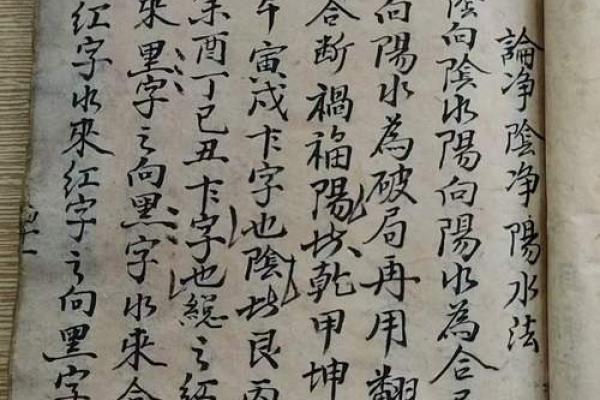 論净陰净陽水法
陰向陰水陽向陽水為合
向陽水為破局再用翻
合断禍福陽坟乾甲坤
午寅戌卞字也陰坟艮丙
未酉丁巳丑卞字也緫之紅
來黑字之向黑字水來合
紅字水來紅字之向黑字